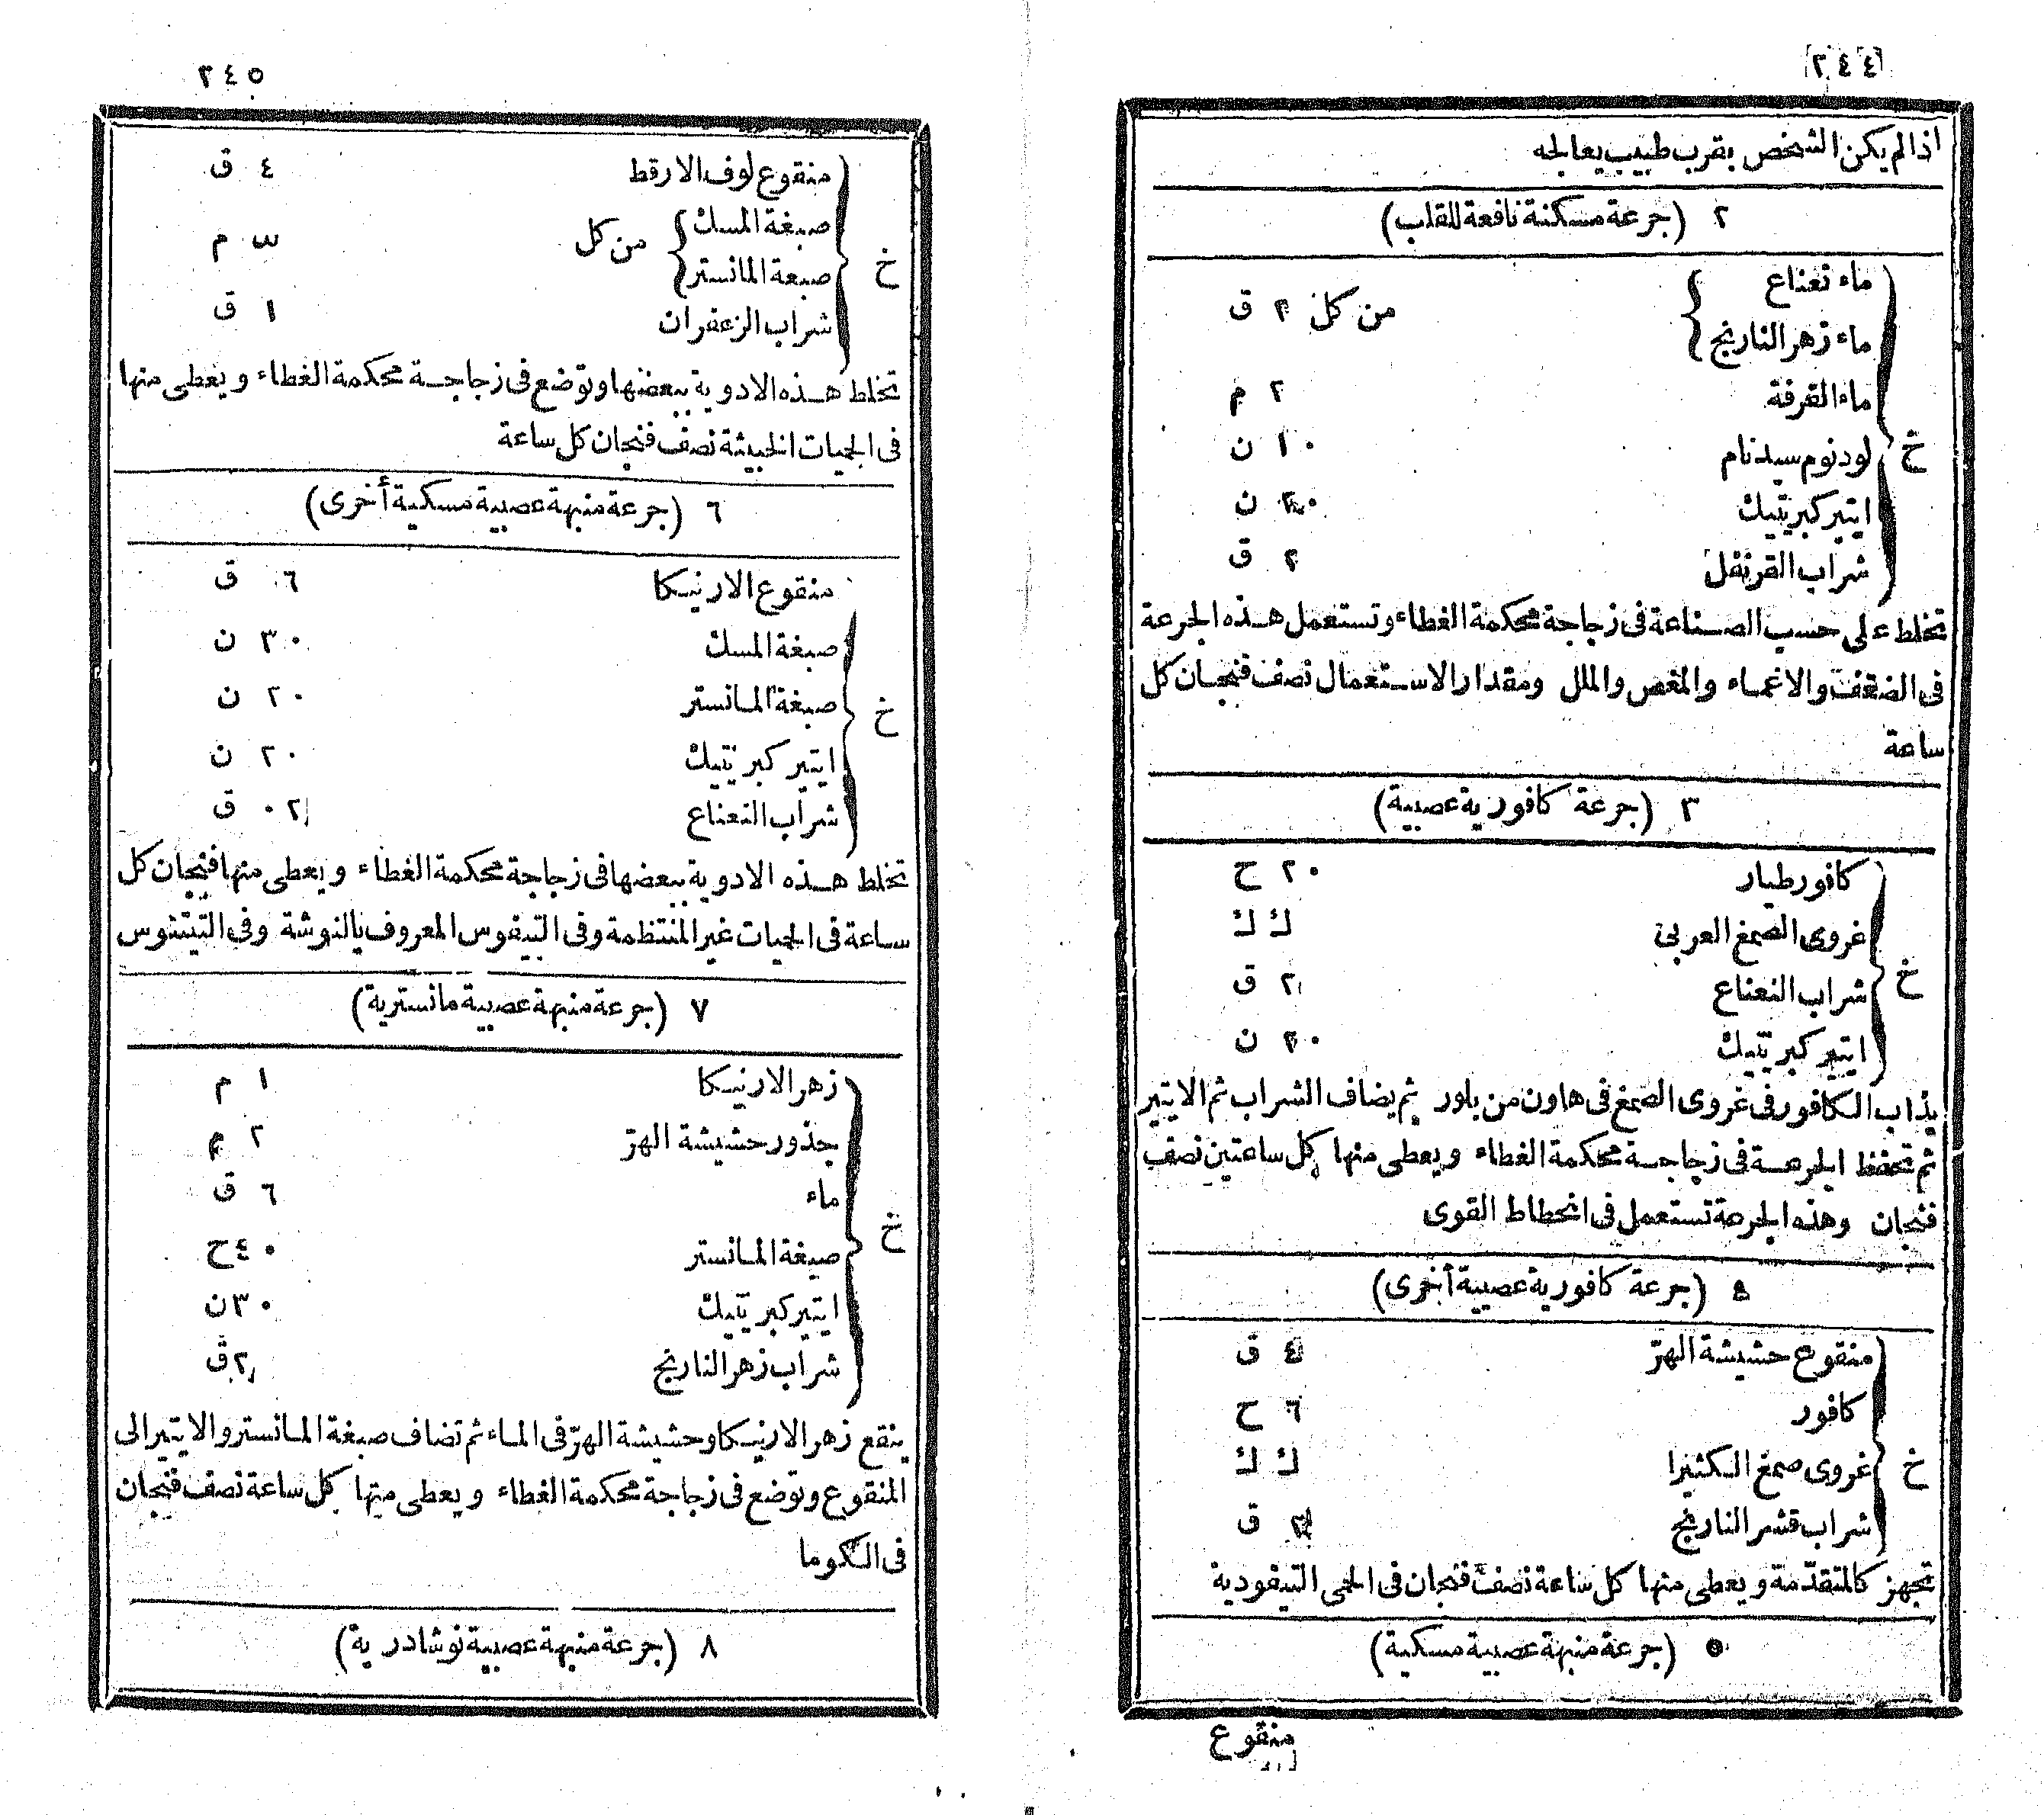 ٢٤٤
اذالم يكن الشخص بقرب طبيب يعالجه
٢ (جرعة مسكنة نافعة للقلب)
ماء نعناع
ماء زهر النارنج
من كل ٢ ق
ماء القرفة ٢ م
لودنوم سيدنام ١٠ ن
ايتير كبريتيك ن
شراب القرنفل ٢ ق
خ
تخلط على حسب الصناعة فى زجاجة محكمة الغطاء وتستعمل هذه الجرعة
فى الضعف والاغماء والمغص والملل ومقدار الاستعمال نصف فنجان كل
ساعة
٣ (جرعة كافورية عصبية)
كافور طيار ٢٠ ح
غروى الصمغ العربى ك ك
خ
شراب النعناع ٢ ق
ايتير كبريتيك ٢٠ ن
يذاب الكافور فى غروى الصمغ فى هاون من بلور ثم يضاف الشراب ثم الايتير
ثم تحفظ الجرعة فى زجاجة محكمة الغطاء ويعطى منها كل ساعتين نصف
فنجان وهذه الجرعة تستعمل فى انحطاط القوى
٤ (جرعة كافورية عصبية أخرى)
منقوع حشيشة الهرّ ٤ ق
كافور ٦ ح
خ
غروى صمغ الكثيرا ك ك
شراب قشر النارنج ق
تجهز كالمتقدّمة ويعطى منها كل ساعة نصف فنجان فى الحمى التيفودية
٥ (جرعة منبهة عصبية مسكية)
منقوع
٢٤٥
منقوع لوف الارقط ٤ ق
صبغة المسك
صبغة المانستر
من كل م
خ
شراب الزعفران ١ ق
تخلط هذه الادوية ببعضها وتوضع فى زجاجة محكمة الغطاء ويعطى منها
فى الحميات الخبيثة نصف فنجان كل ساعة
٦ (جرعة منبهة عصبية مسكية أخرى)
منقوع الارنيكا ٦ ق
صبغة المسك ٣٠ ن
صبغة المانستر ٢٠ ن
خ
ايتير كبريتيك ٢٠ ن
شراب النعناع ٢٠ ق
تخلط هذه الادوية ببعضها فى زجاجة محكمة الغطاء ويعطى منها فنجان كل
ساعة فى الحميات غير المنتظمة وفى التيفوس المعروف بالنوشة وفى التيتنوس
٧ (جرعة منبهة عصبية مانسترية)
زهر الارنيكا ١ م
جذور حشيشة الهرّ ٢ م
ماء ٦ ق
خ
صبغة المانستر ٤٠ ح
ايتير كبريتيك ٣٠ ن
شراب زهر النارنج ٢ ق
ينقع زهر الارنيكا وحشيشة الهرّ فى الماء ثم تضاف صبغة المانستر والايتير الى
المنقوع وتوضع فى زجاجة محكمة الغطاء ويعطى منها كل ساعة نصف فنجان
فى الكوما
٨ (جرعة منبهة عصبية نوشادرية)